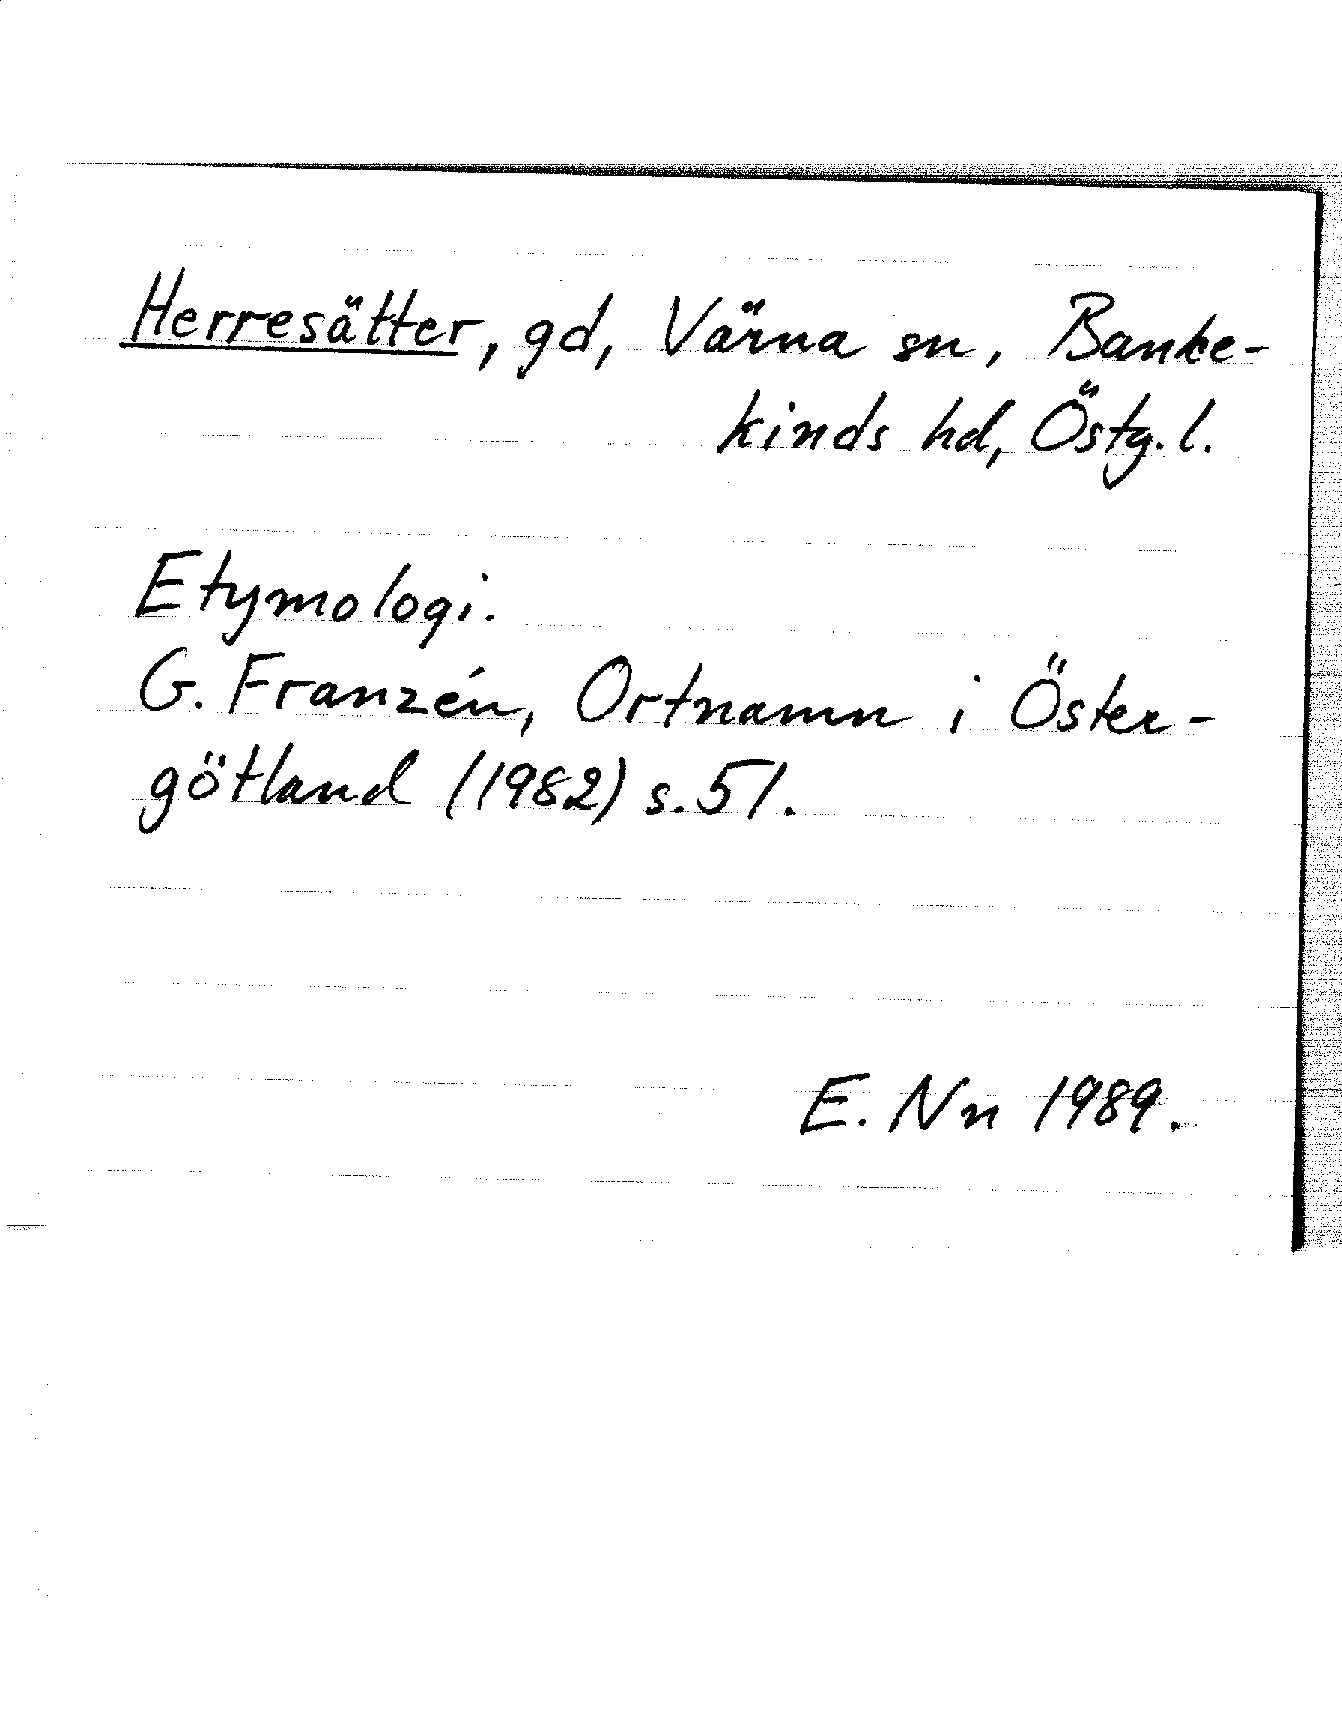 Herresätter, gd, Värna sn, Banke-
kinds hd, Östg.l.
Etymologi.
G. Franzén, Ortnamn i Öster-
götland (1982) s. 51.
E. Nn 1989.